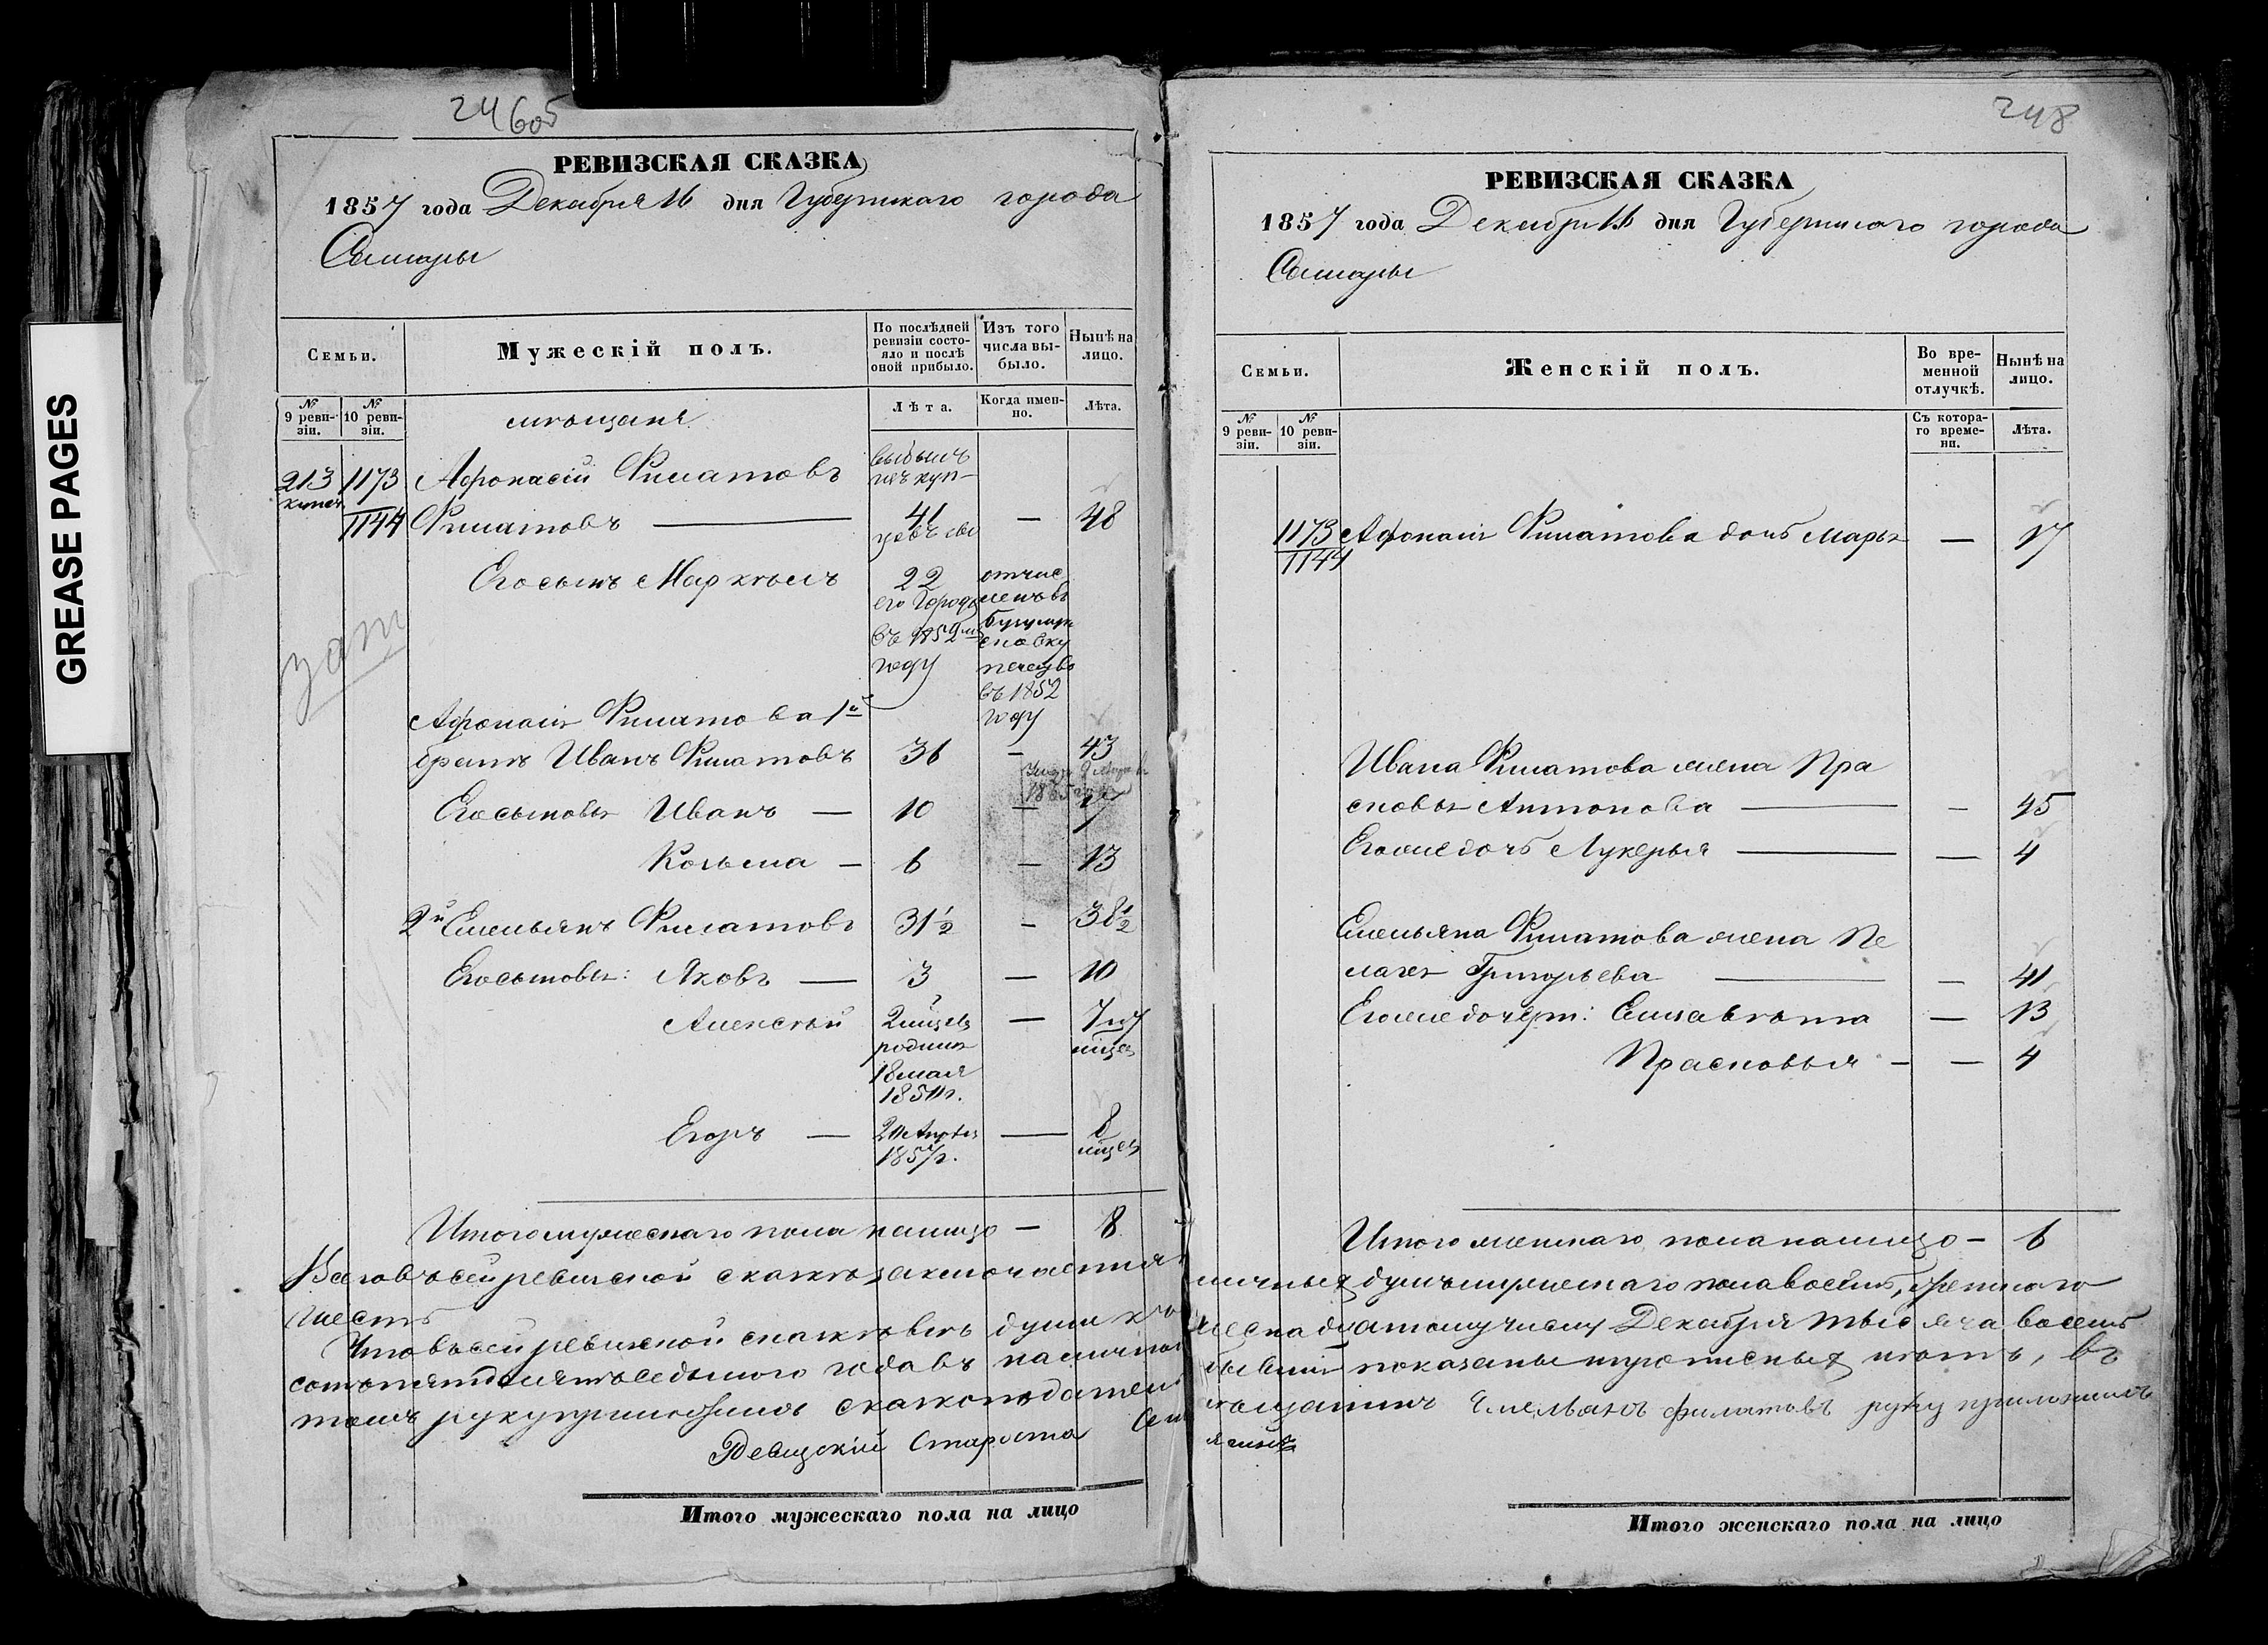 GREASE PAGES
24605
РЕВИЗСКАЯ СКАЗКА
1857 года Декабря 16 дня Губернскаго города
Самары
Семьи.
Мужескій полъ.
По послѣдней ревизіи состояло и послѣ оной прибыло.
Изъ того числа выбыло.
Нынѣ на лицо.
№ 9 ревизіи.
№ 10 ревизіи.
мѣщане
Лѣта.
Когда именно.
Лѣта.
213 1173 Афонасій Филатовъ
1144 Филатовъ — 41 — 48
Его сынъ Маркѣлъ 22
въ 1852 году
въ 1852 году
Афонасія Филатова 1й
братъ Иванъ Филатовъ 36 — 43
Его сыновья Иванъ — 10 — 17
Козьма — 6 — 13
2й Емельянъ Филатовъ 31 1/2 — 38 1/2
Его сыновья: Яковъ — 3 — 10
Алексѣй
18 мая
Егоръ —
Итого мужескаго пола налицо — 8
Всего въ сей ревизской сказкѣ заключается
шесть
Что въ сей ревизской сказкѣ всѣ души
томъ
Ревизскій Староста
Итого мужескаго пола на лицо
248
РЕВИЗСКАЯ СКАЗКА
1857 года Декабря 16 дня Губернскаго города
Самары
Семьи.
Женскій полъ.
Во временной отлучкѣ.
Нынѣ на лицо.
№ 9 ревизіи.
№ 10 ревизіи.
Съ котораго времени.
Лѣта.
1173 Афонасія Филатова дочь Марья — 17
1144
Ивана Филатова жена Пра
сковья Антонова — 45
Его же дочь Лукерья — 4
Емельяна Филатова жена Пе
лагея Григорьева — 41
Его же дочери: Елисавѣта — 13
Прасковья — 4
Итого женскаго пола налицо — 6
душъ мужескаго пола восемь, женскаго
шеснадцатому числу Декабря тысяча восемь
показаны и прописныхъ нѣтъ, въ
мѣщанинъ Емельянъ Филатовъ руку приложилъ
Итого женскаго пола на лицо